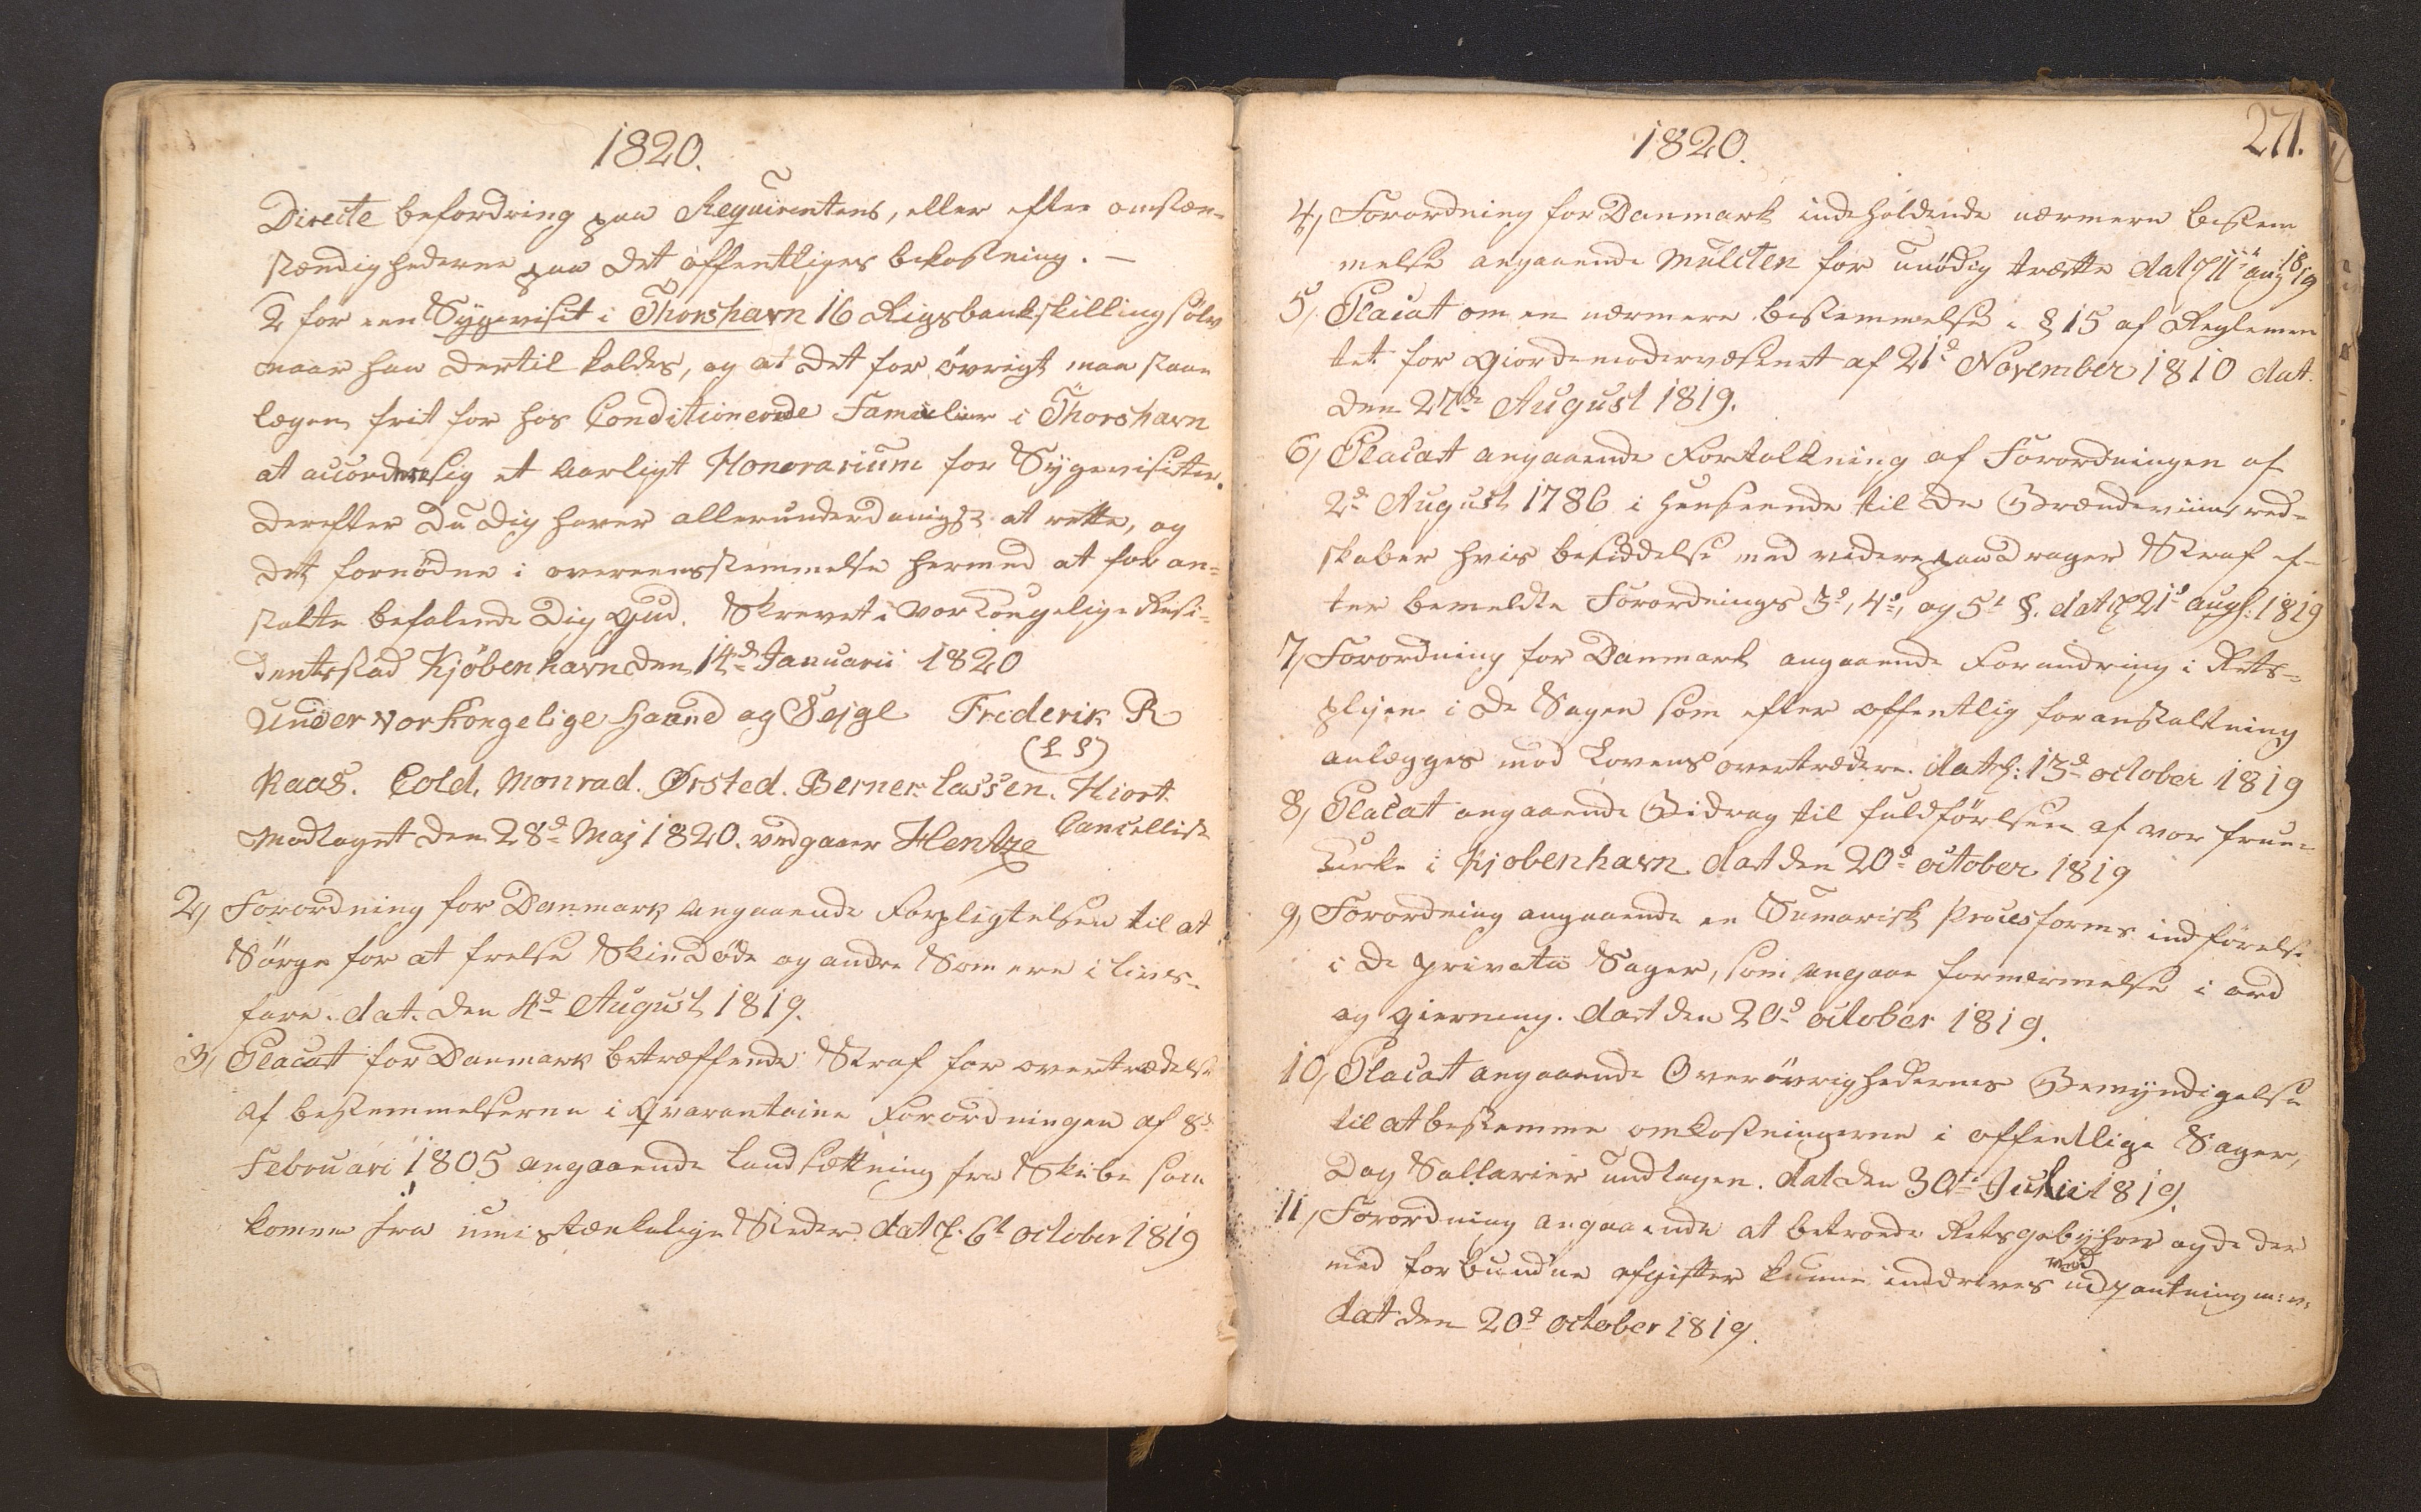 1820.
Directe befordring paa Requirentens, eller efter omstæn-
stændighederne paa det offentliges bekostning. —
2 for een Sygevisit i Thorshavn 16 Rigsbankskilling sölv
naar han dertil kaldes, og at det for övrigt maa staae
lægen frit for hos Conditionerede Familier i Thorshavn
at accordere sig et aarligt Honorarium for Sygevisiter.
derefter Du dig haver allerunderdanigst at rette, og
det fornödne i overeensstemmelse hermed at for an-
stalte befalende Dig Gud. Skrevet i vor Kongelige Resi-
dentsstad Kjöbenhavn den 14d Januarii 1820
Under Vor Kongelige Haand og Sejgl Friderik R
(L S)
Kaas. Cold. Monrad. Ørsted. Berner. Lassen. Hiort.
Modtaget den 28d Maj 1820. vedgaaer Hentze Cancellist
2, Forordning for Danmark angaaende Forpligtelsen til at
Sörge for at frelse Skindøde og andre Som ere i livs-
fare. dat. den 4d August 1819.
3, Placat for Danmark betræffende Straf for overtrædelse
af bestemmelserne i Qvarantaine Forordningen af 8d
Februari 1805 angaaende landsættning fra Skibe som
komme fra umistænkelige Stæder dat. 6t October 1819
1820.
271.
4, Forordning for Danmark indeholdende nærmere bestem
melse angaaende Mulcten for unödig trætte dat 11 aug 1819
5, Placat om en nærmere bestemmelse i § 15 af Reglemen
tet for Giordemodervæsenet af 21d November 1810 dat.
den 27de August 1819.
6, Placat angaaende Fortolkning af Forordningen af
2d August 1786 i henseende til de Brændeviins red-
skaber hvis besiddelse med videre paadrager Straf ef-
ter bemeldte Forordnings 3d, 4d, og 5t §. dat 21d augs: 1819
7, Forordning for Danmark angaaende Forandring i Rets-
plejen i de Sager som efter offentlig foranstaltning
anlægges mod Lovens overtrædere. dat: 13d october 1819
8, Placat angaaende Bidrag til fuldförelsen af vor frue-
Kirke i Kjobenhavn dat den 20d october 1819
9, Forordning angaaende en Sumarisk Procesforms indförelse
i de private Sager, som angaae fornærmelse i ord
og gierning. dat den 20d october 1819.
10, Placat angaaende Overövrighedernes Bemyndigelse
til at bestemme omkostningerne i offentlige Sager,
dog Sallarier undtagen. dat den 30te Julii 1819.
11, Forordning angaaende at betroede Retsgebyhrer og de der
med forbundne afgifter kunne inddrives ved udpantning m: v:
dat den 20d october 1819.